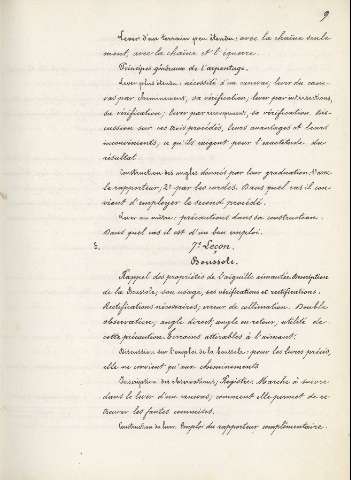 9
Lever d'un terrain peu étendu: avec la chaîne seule
ment, avec la chaîne et l'équerre.
Principes généraux de l'arpentage.
Lever plus étendu: nécessité d'un canevas, lever du cane
vas par cheminement, sa vérification; lever par intersections,
sa vérification; lever par recoupement, sa vérification. Dis-
cussion sur ces trois procédés, leurs avantages et leurs
inconvénients, ce qu'ils exigent pour l'exactitude du
résultat.
Construction des angles donnés par leur graduation: 1° avec
le rapporteur; 2° par les cordes. Dans quel cas il con-
vient d'employer le second procédé.
Lever au mètre: précautions dans sa construction.
Dans quel cas il est d'un bon emploi.
5. 7e Leçon.
Boussole.
Rappel des propriétés de l'aiguille aimantée. Description
de la Boussole; son usage, ses vérifications et rectifications.
Rectifications nécessaires; erreur de collimation. Double
observation; angle direct, angle en retour; utilité de
cette précaution. Terrains attirables à l'aimant.
Discussion sur l'emploi de la boussole: pour les levers précis,
elle ne convient qu'aux cheminements
Inscription des observations; Registre. Marche à suivre
dans le lever d'un canevas; comment elle permet de re-
trouver les fautes commises.
Construction du lever. Emploi du rapporteur complémentaire.